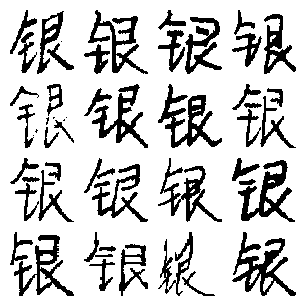 银银银银
银银银银
银银银银
银银银银